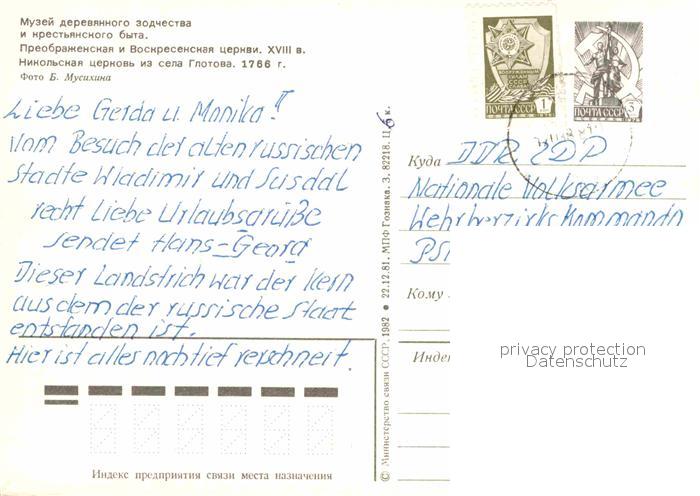 Музей деревянного зодчества
и крестьянского быта.
Преображенская и Воскресенская церкви. XVIII в.
Никольская церковь из села Глотова. 1766 г.
Фото Б. Мусихина
Liebe Gerda u. Monika!
Vom Besuch der alten russischen
Städte Wladimir und Susdal
recht Liebe Urlaubsgrüße
sendet Hans-Georg
Dieser Landstrich war der Kern
aus dem der russische Staat
entstanden ist.
Hier ist alles noch tief verschneit.
Индекс предприятия связи места назначения
© Министерство связи СССР, 1982 • 22.12.81. МПФ Гознака. З. 82218. Ц. 6 к.
ВООРУЖЕННЫЕ СИЛЫ СССР
ПОЧТА СССР 1
ПОЧТА СССР 3
Куда DDR CDP
Nationale Volksarmee
Wehrbezirks Kommando
Кому
Индек
privacy protection
Datenschutz